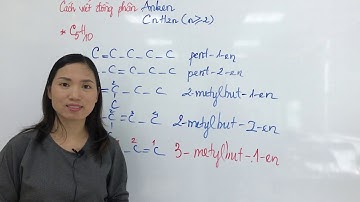 Cách viết đồng phân Anken
CnH2n (n≥2)
* C5H10
C = C - C - C - C pent-1-en
- C = C - C - C pent-2-en
C = C - C - C 2-metylbut-1-en
C
C = C - C 2-metylbut-2-en
C
- C = C 3-metylbut-1-en